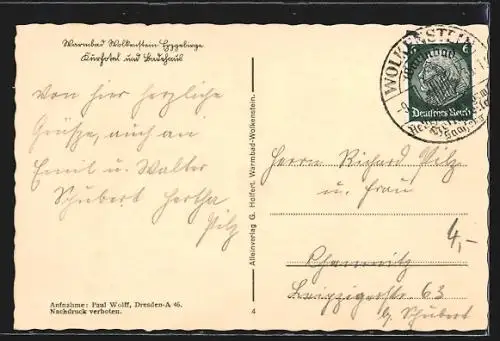 Warmbad Wolkenstein Erzgebirge
Kurhotel und Badehaus
Von hier herzliche
Grüße, auch an
Emil u. Walter
Schubert Hertha
Pilz
Aufnahme: Paul Wolff, Dresden-A 46.
Nachdruck verboten.
Alleinverlag G. Helfert, Warmbad-Wolkenstein.
4
WOLKENSTEIN
Warmbad
6 6
Deutsches Reich
Herrn Richard Pilz
u. Frau
4,-
Chemnitz
Leipzigerstr. 63
b/ Schubert